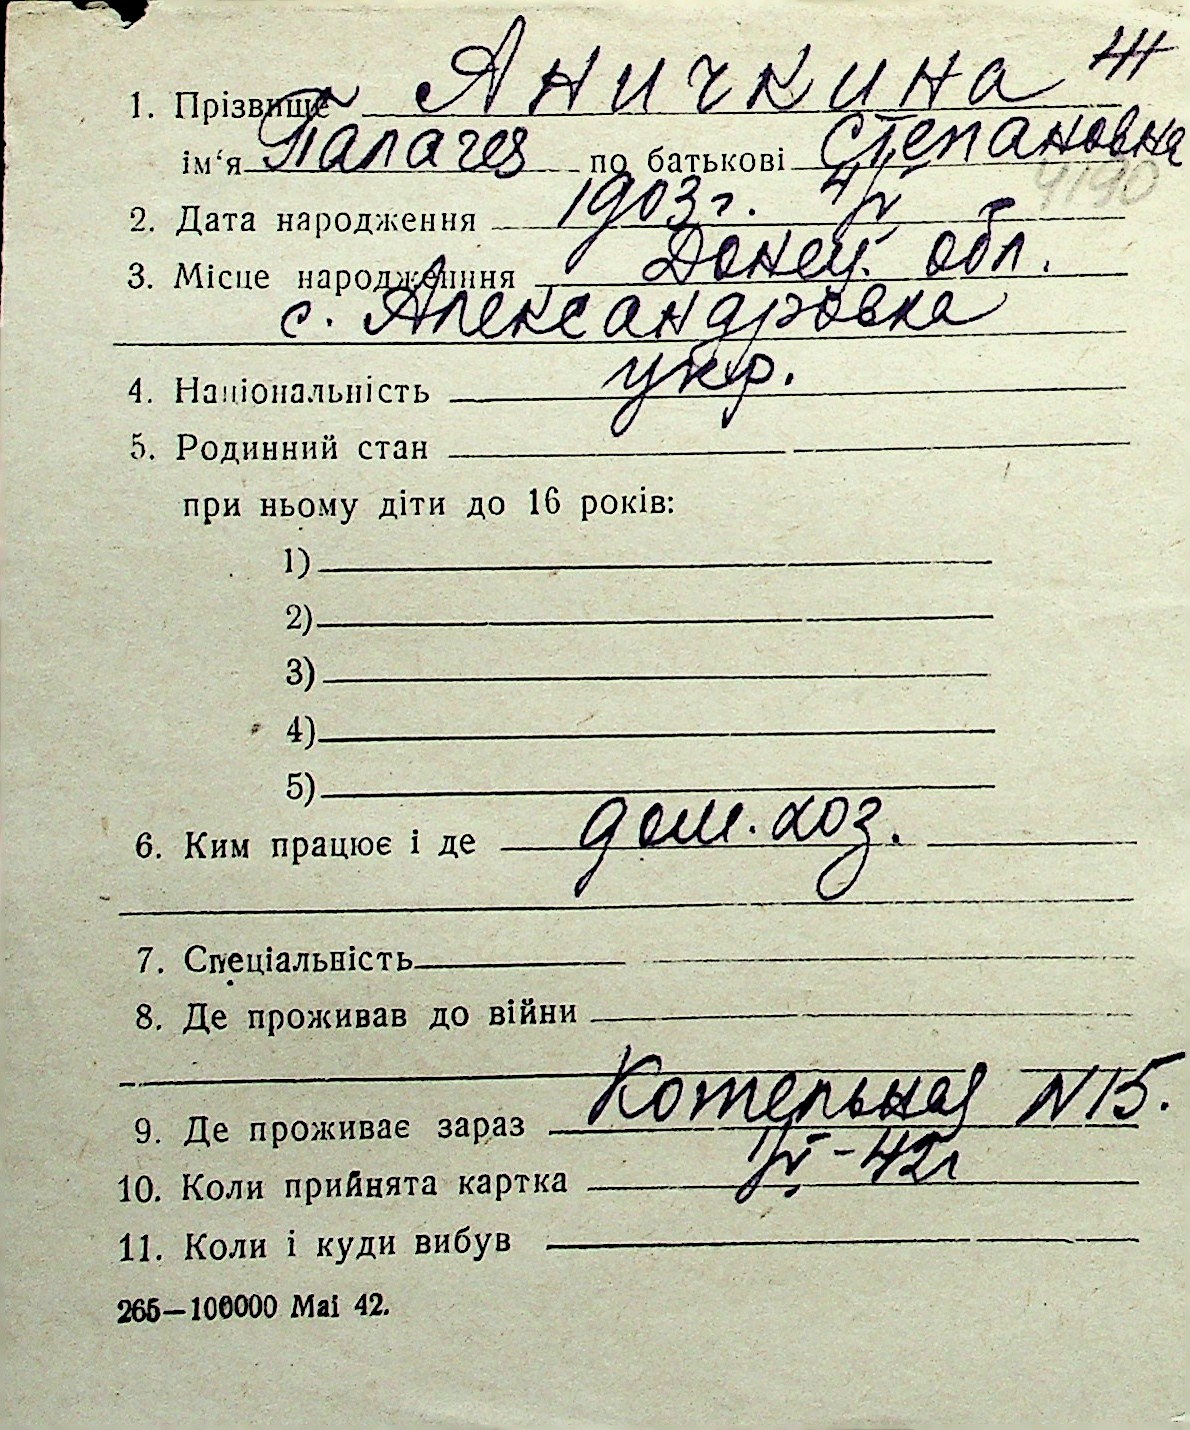 1. Прізвище Аничкина Ж
ім‘я Палагея по батькові Степановна
4190
2. Дата народження 1903г. 4/V
3. Місце народження Донец. обл.
с. Александровка
4. Національність укр.
5. Родинний стан
при ньому діти до 16 років:
1)
2)
3)
4)
5)
6. Ким працює і де дом. хоз.
7. Спеціальність
8. Де проживав до війни
9. Де проживає зараз Котельная N 15.
10. Коли прийнята картка -42г
11. Коли і куди вибув
265—100000 Маі 42.